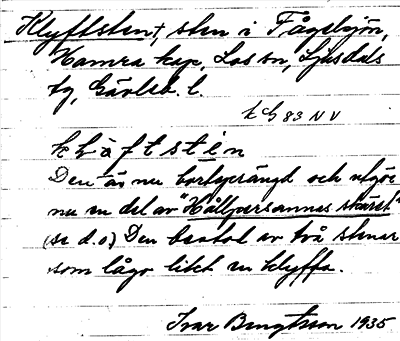 Klyftsten, sten i Fågelsjön,
Hamra kap, Los sn, Ljusdals
tg, Gävleb. l.
83 NV
Den är nu bortsprängd och utgör
nu en del av "Hållpersannas skäret"
(se d.o) Den bestod av två stenar
som lågo likt en klyffa.
Ivar Bengtsson 1935